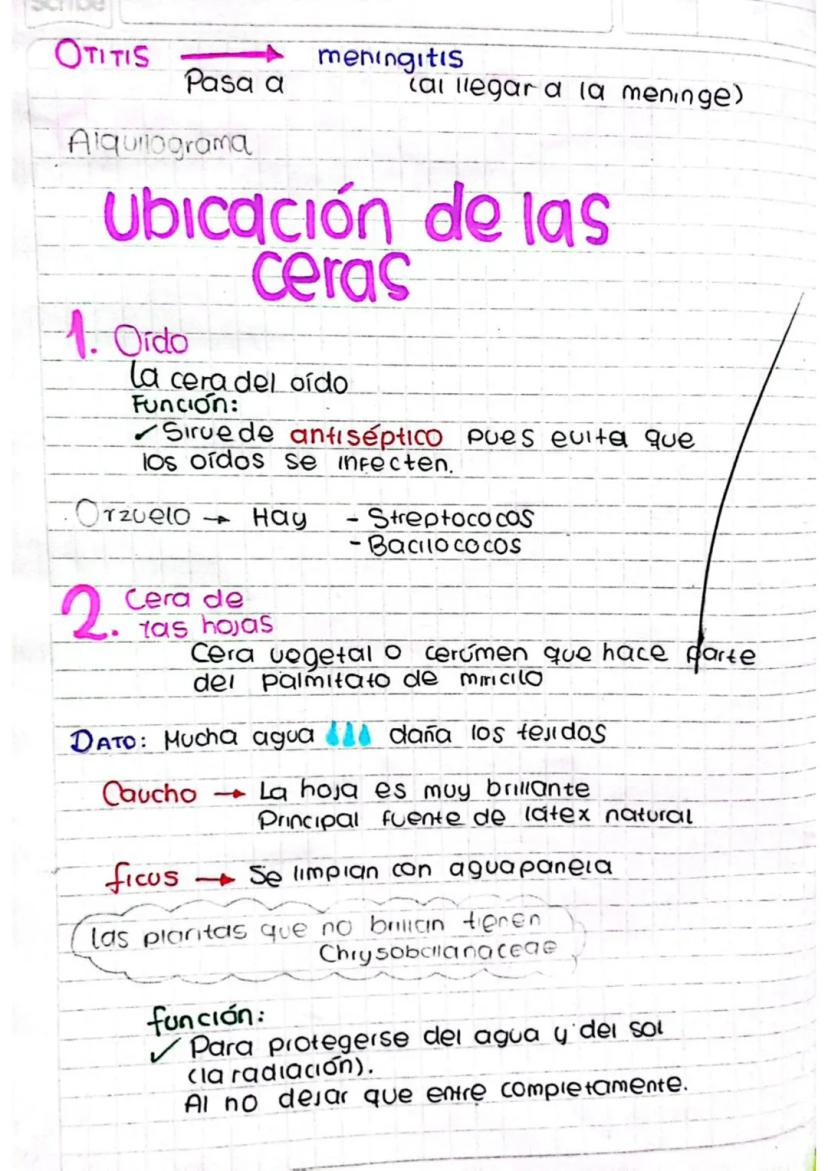 Scribe
OTITIS → meningitis
Pasa a (al llegar a la meninge)
Alquilograma
Ubicación de las
ceras
1. Oído
La cera del oído
Función:
✓ Sirve de antiséptico pues evita que
los oídos se infecten.
Orzuelo → Hay - Streptococos
- Bacilococos
2. Cera de
las hojas
Cera vegetal o cerúmen que hace parte
del palmitato de miricilo
DATO: Mucha agua daña los tejidos
Caucho → La hoja es muy brillante
Principal fuente de látex natural
ficus → Se limpian con aguapanela
Las plantas que no brillan tienen
Chrysobalanaceae
función:
✓ Para protegerse del agua y del sol
(la radiación).
Al no dejar que entre completamente.